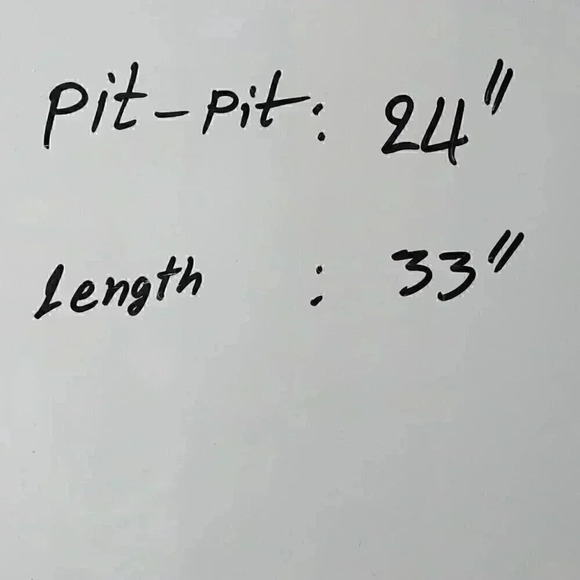 Pit-Pit: 24"
Length : 33"